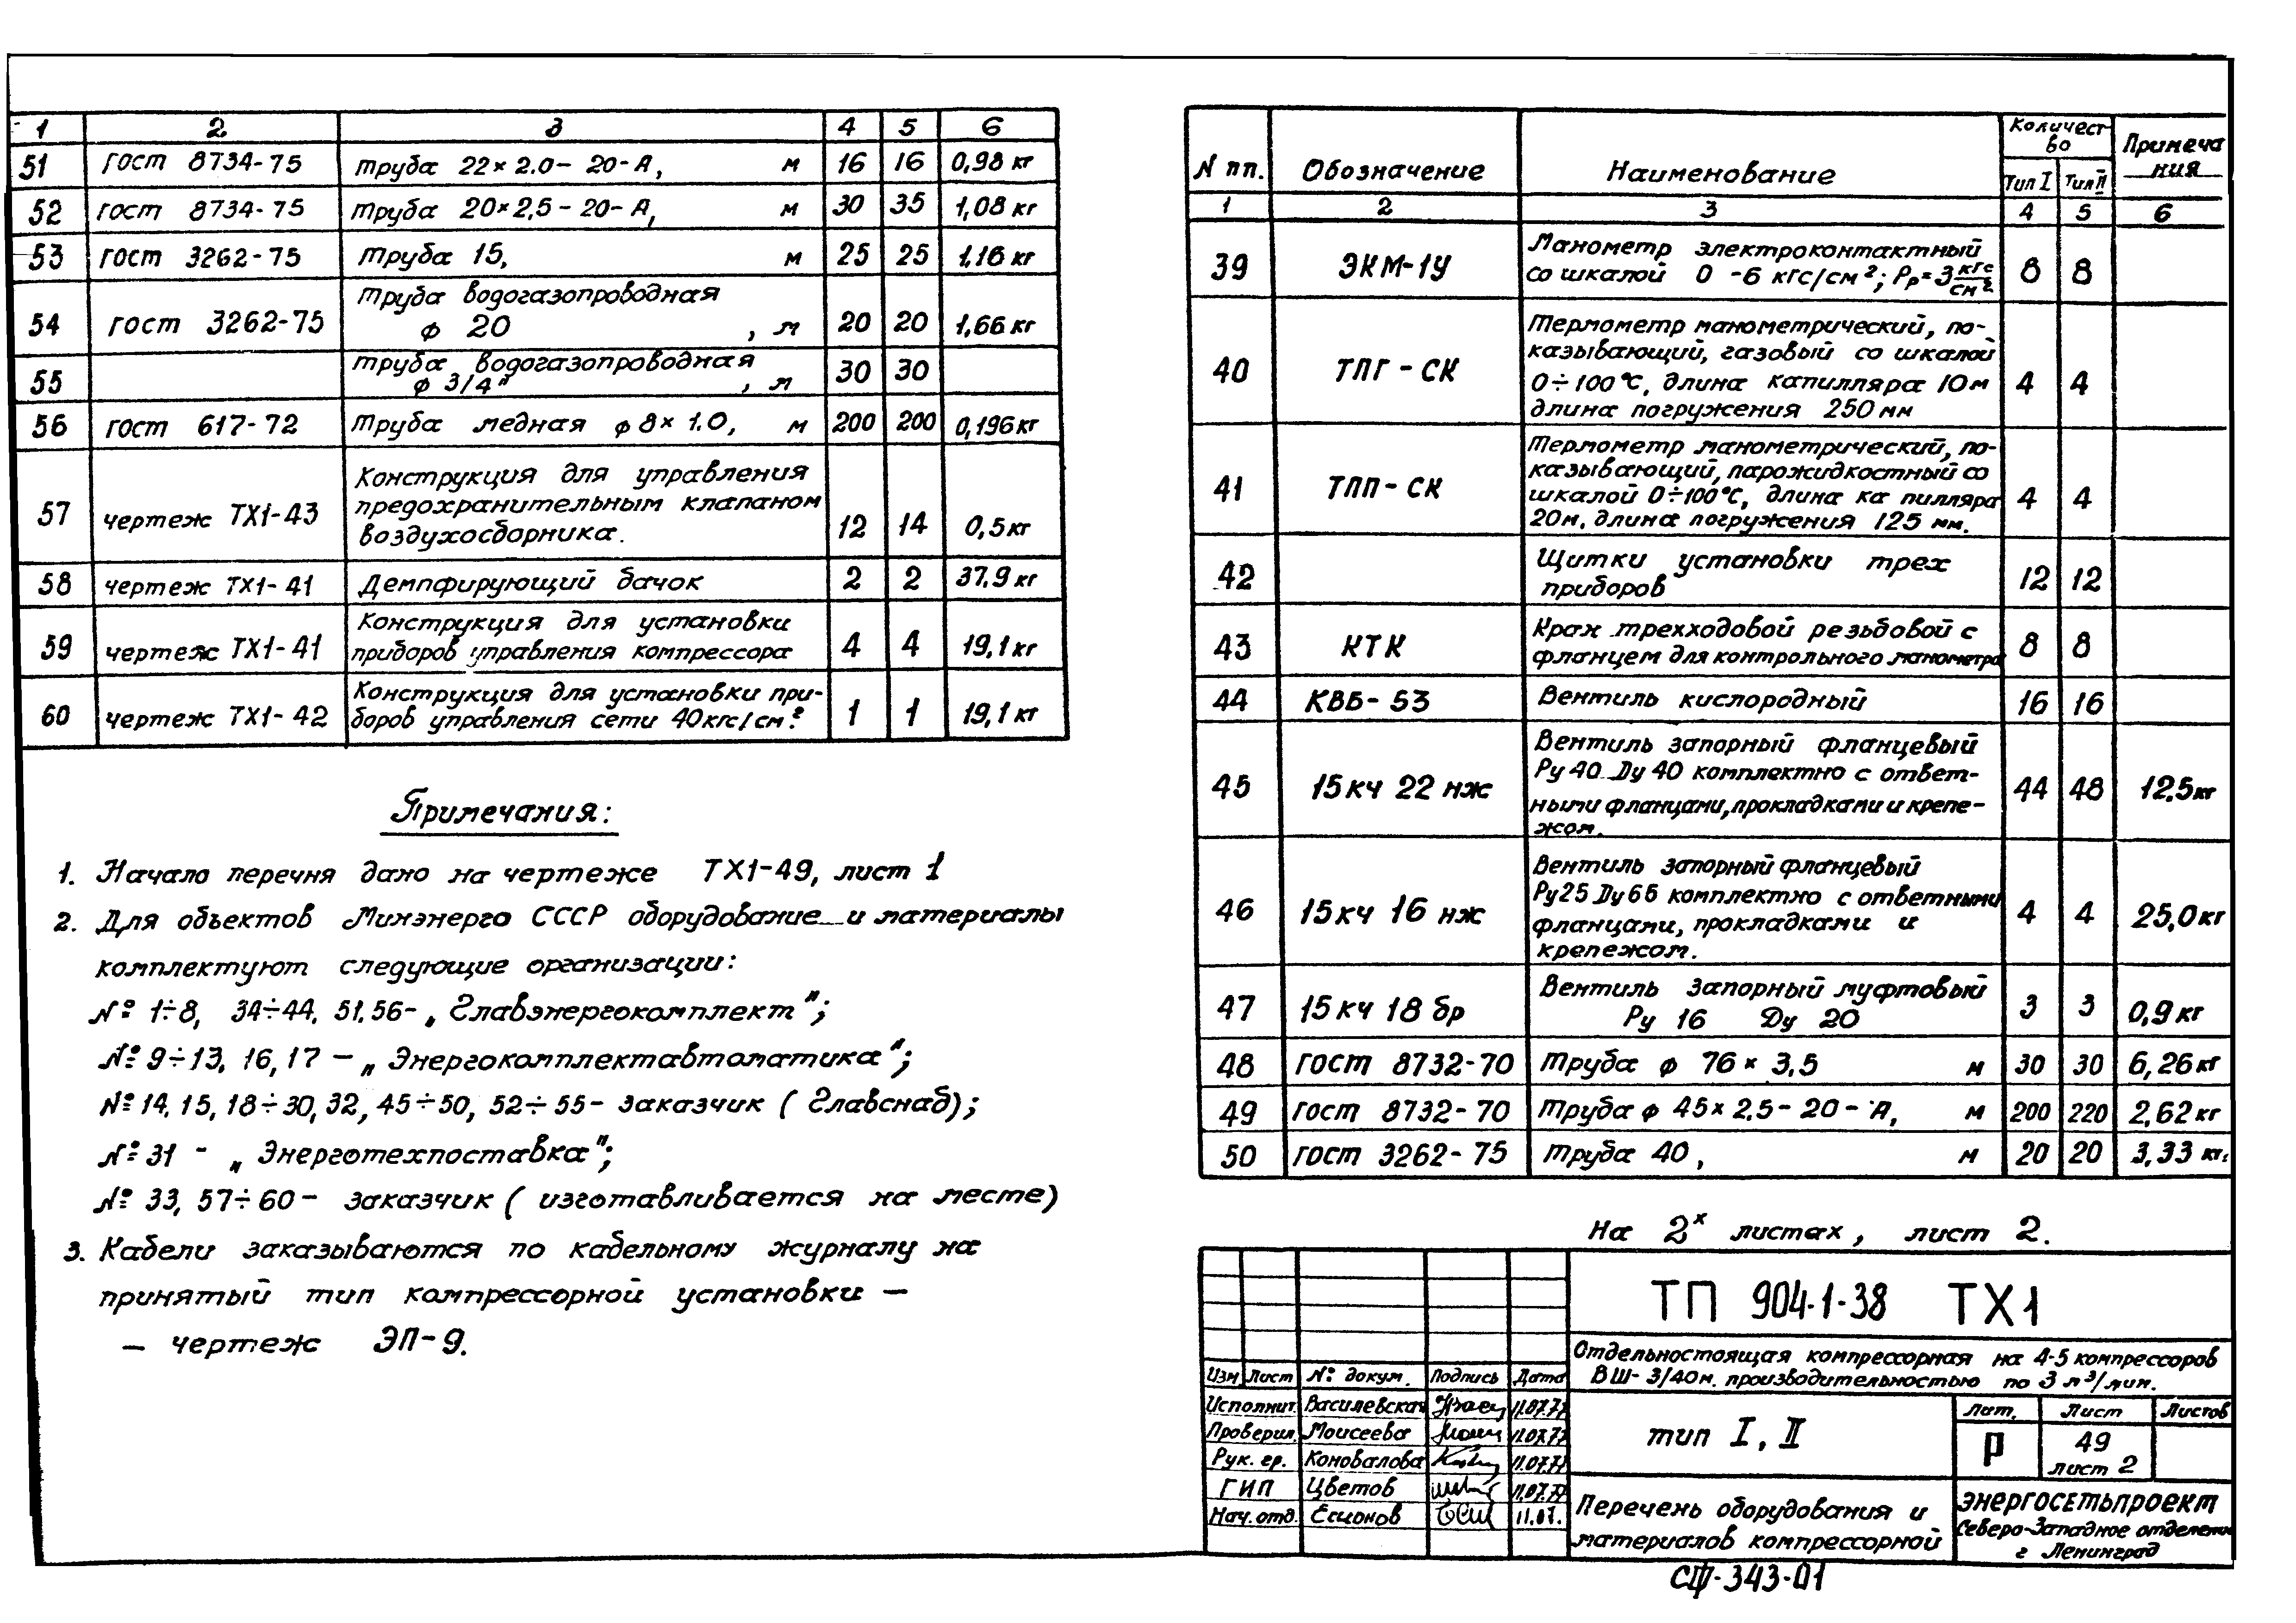 1 2 3 4 5 6
51 ГОСТ 8734-75 Труба 22×2.0- 20-А, м 16 16 0,98 кг
52 ГОСТ 8734-75 Труба 20×2,5- 20-А, м 30 35 1,08 кг
53 ГОСТ 3262-75 Труба 15, м 25 25 1,16 кг
54 ГОСТ 3262-75 Труба водогазопроводная
ф 20 , м 20 20 1,66 кг
55 Труба водогазопроводная
ф 3/4" , м 30 30
56 ГОСТ 617-72 Труба медная ф 8×1.0, м 200 200 0,196 кг
57 чертеж ТХ1-43 Конструкция для управления
предохранительным клапаном
воздухосборника. 12 14 0,5 кг
58 чертеж ТХ1-41 Демпфирующий бачок 2 2 37.9 кг
59 чертеж ТХ1-41 Конструкция для установки
приборов управления компрессора 4 4 19,1 кг
60 чертеж ТХ1-42 Конструкция для установки при-
боров управления сети 40 кгс/см² 1 1 19,1 кг
Примечания:
1. Начало перечня дано на чертеже ТХ1-49, лист 1
2. Для объектов Минэнерго СССР оборудование и материалы
комплектуют следующие организации:
№ 1÷8, 34÷44, 51,56- „Главэнергокомплект";
№ 9÷13, 16,17 - „Энергокомплектавтоматика";
№ 14, 15, 18÷30, 32, 45÷50, 52÷55- заказчик (Главснаб);
№ 31 - „Энерготехпоставка";
№ 33, 57÷60- заказчик (изготавливается на месте)
3. Кабели заказываются по кабельному журналу на
принятый тип компрессорной установки -
- чертеж ЭП-9.
N пп. Обозначение Наименование Количест
во Примеча
ния
Тип I Тип II
1 2 3 4 5 6
39 ЭКМ-1У Манометр электроконтактный
со шкалой 0 -6 кгс/см²; Рр=3 кгс/см² 8 8
40 ТПГ-СК Термометр манометрический, по-
казывающий, газовый со шкалой
0÷100°С, длина капилляра 10м
длина погружения 250 мм 4 4
41 ТПП-СК Термометр манометрический, по-
казывающий, парожидкостный со
шкалой 0÷100°С, длина ка пилляра
20м, длина погружения 125 мм. 4 4
42 Щитки установки трех
приборов 12 12
43 КТК Кран трехходовой резьбовой с
фланцем для контрольного манометра 8 8
44 КВБ-53 Вентиль кислородный 16 16
45 15кч 22 нж Вентиль запорный фланцевый
Ру 40 Ду 40 комплектно с ответ-
ными фланцами, прокладками и крепе-
жом. 44 48 12,5 кг
46 15кч 16 нж Вентиль запорный фланцевый
Ру 25 Ду 65 комплектно с ответными
фланцами, прокладками и
крепежом. 4 4 25,0 кг
47 15кч 18 бр Вентиль запорный муфтовый
Ру 16 Ду 20 3 3 0,9 кг
48 ГОСТ 8732-70 Труба ф 76×3,5 м 30 30 6,26 кг
49 ГОСТ 8732-70 Труба ф 45×2,5-20-А, м 200 220 2,62 кг
50 ГОСТ 3262-75 Труба 40, м 20 20 3,33 кг.
На 2х листах, лист 2.
ТП 904-1-38 ТХ1
Отдельностоящая компрессорная на 4-5 компрессоров
ВШ-3/40м. производительностью по 3 м³/мин.
Изм Лист № докум. Подпись Дата
Исполнит. Василевская 11.07.77
Проверил. Моисеева 11.07.77
Рук. гр. Коновалова 11.07.77
ГИП Цветов 11.07.77
Нач.отд. Есионов 11.07.
тип I, II
Лит. Лист Листов
Р 49
лист 2
Перечень оборудования и
материалов компрессорной
ЭНЕРГОСЕТЬПРОЕКТ
Северо-Западное отделение
г Ленинград
СФ-343-01